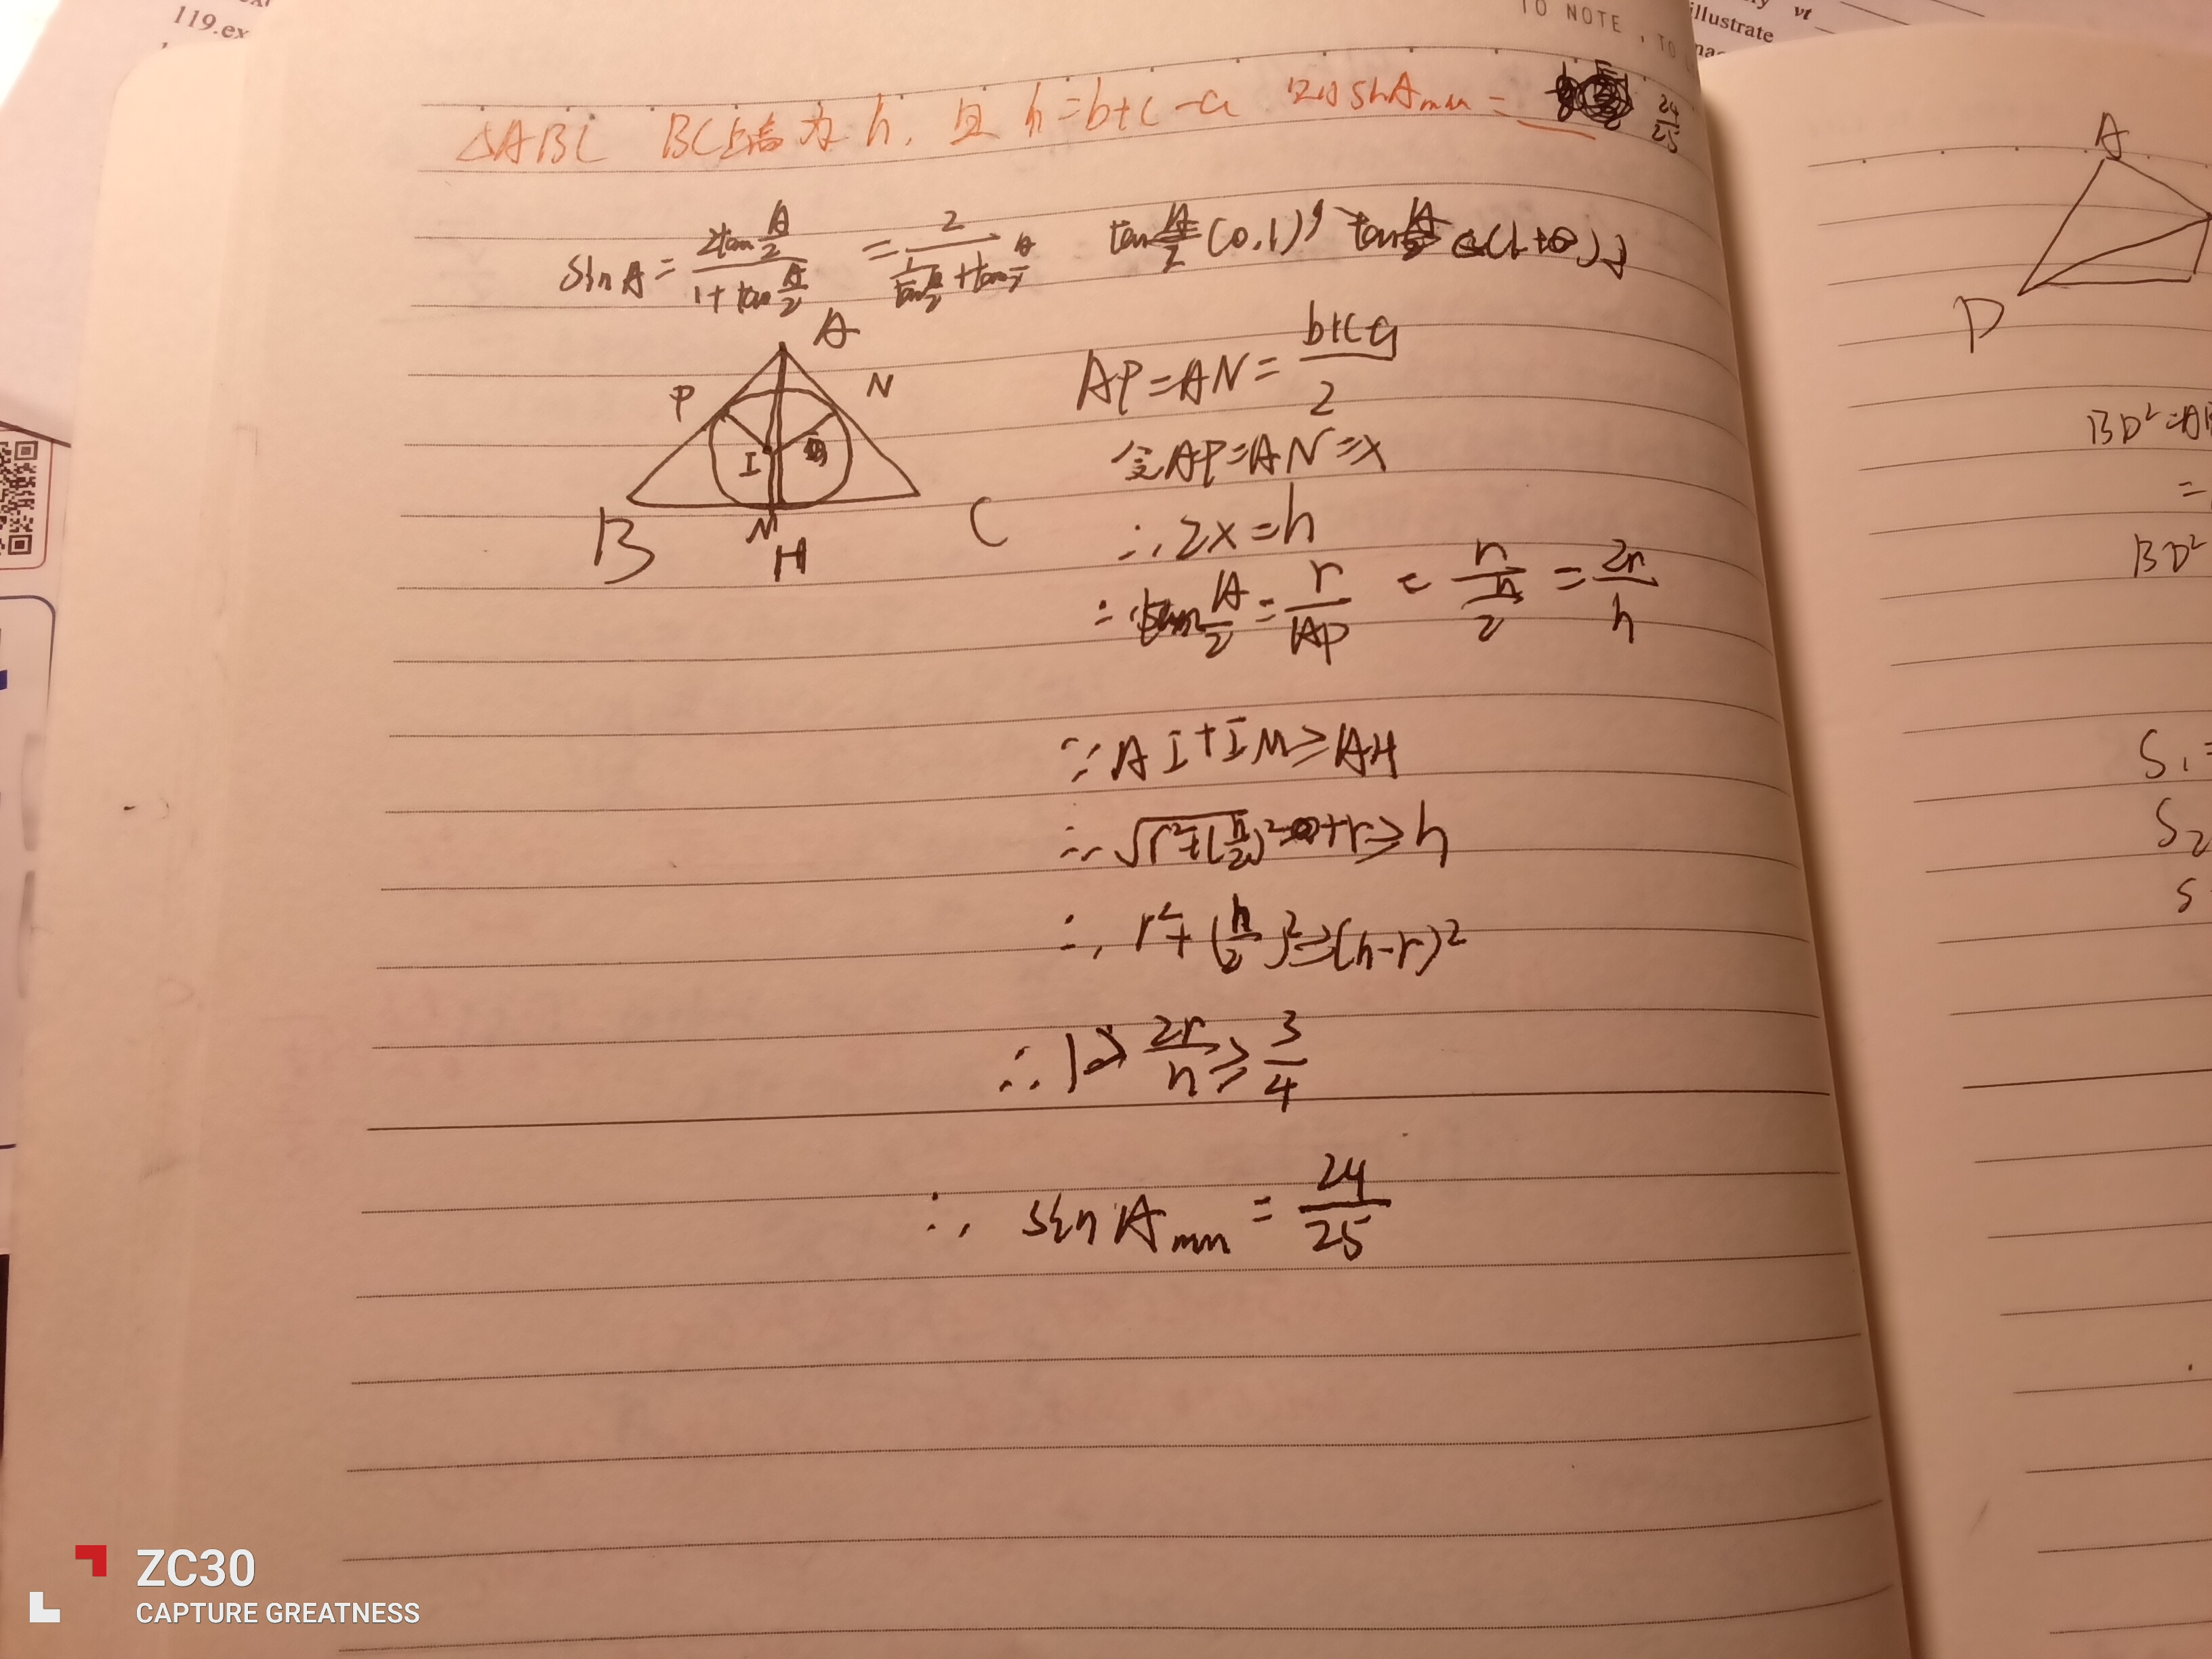 119.ex
TO NOTE , TO
illustrate
vt
△ABC BC上高为 h, 且 h=b+c-a 则 sinAmin = 24/25
sinA = 2tan A/2 / 1+tan A/2 = 2 / 1/tan A/2 + tan A/2 tan A/2 (0,1)
A
P
N
I
B
M
H
C
AP=AN= b+c-a / 2
令AP=AN=x
∴ 2x=h
∴ tan A/2 = r/AP = r / h/2 = 2r/h
∵ AI+IM≥AH
∴ √r²+(h/2)² +r≥h
∴ r²+(h/2)²≥(h-r)²
∴ 1> 2r/h ≥ 3/4
∴ sinAmin = 24/25
A
D
BD²=AB
=
BD²
S₁=
S₂
S
ZC30
CAPTURE GREATNESS